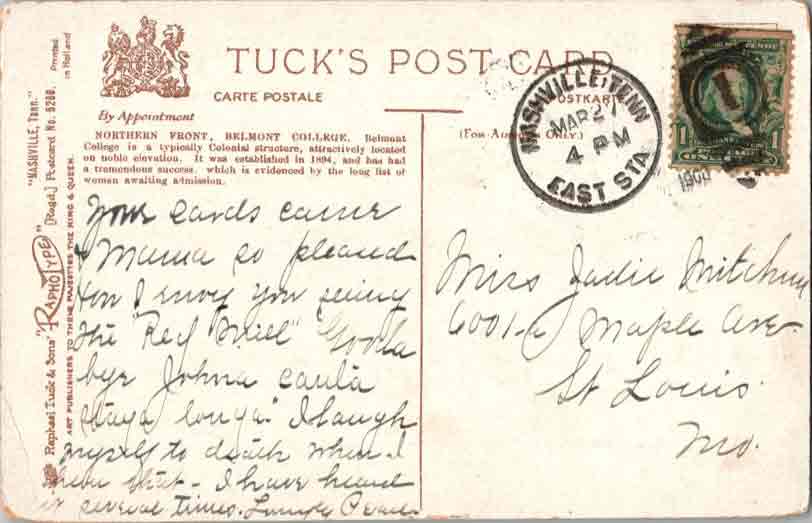 TUCK'S POST CARD
CARTE POSTALE
POSTKARTE
By Appointment
(For Address Only.)
NORTHERN FRONT, BELMONT COLLEGE. Belmont
College is a typically Colonial structure, attractively located
on noble elevation. It was established in 1894, and has had
a tremendous success, which is evidenced by the long list of
women awaiting admission.
"NASHVILLE, Tenn."
Raphael Tuck & Sons' "RAPHOTYPE" (Regd.) Postcard No. 5280.
ART PUBLISHERS TO THEIR MAJESTIES THE KING & QUEEN.
Printed
in Holland
NASHVILLE, TENN
MAR 21
4 PM
EAST STA.
1
Your cards came
Mama so pleased
How I envoy you seeing
the "Red Mill" "Gooda
bye Johna canta
staya longa." I laugh
myself to death when I
hear that - I have heard
it several times.
Miss Jadie
6001-a Maple Ave
St Louis
Mo.